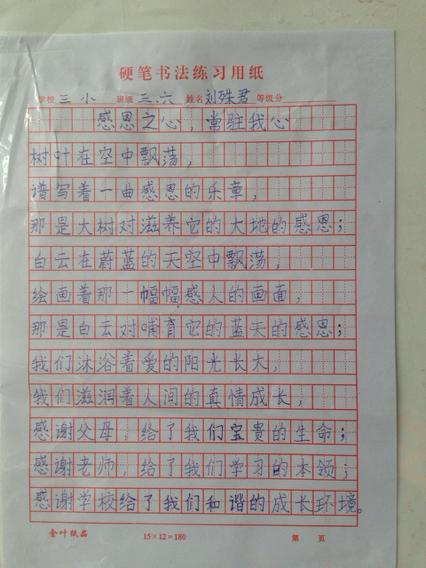 硬笔书法练习用纸
学校 三小 班级 三.六 姓名 刘殊君 等级分
感恩之心,常驻我心
树叶在空中飘荡,
谱写着一曲感恩的乐章,
那是大树对滋养它的大地的感恩;
白云在蔚蓝的天空中飘荡,
绘画着那一幅幅感人的画面,
那是白云对哺育它的蓝天的感恩;
我们沐浴着爱的阳光长大,
我们滋润着人间的真情成长,
感谢父母,给了我们宝贵的生命;
感谢老师,给了我们学习的本领;
感谢学校给了我们和谐的成长环境。
金叶纸品 15×12=180 第 页